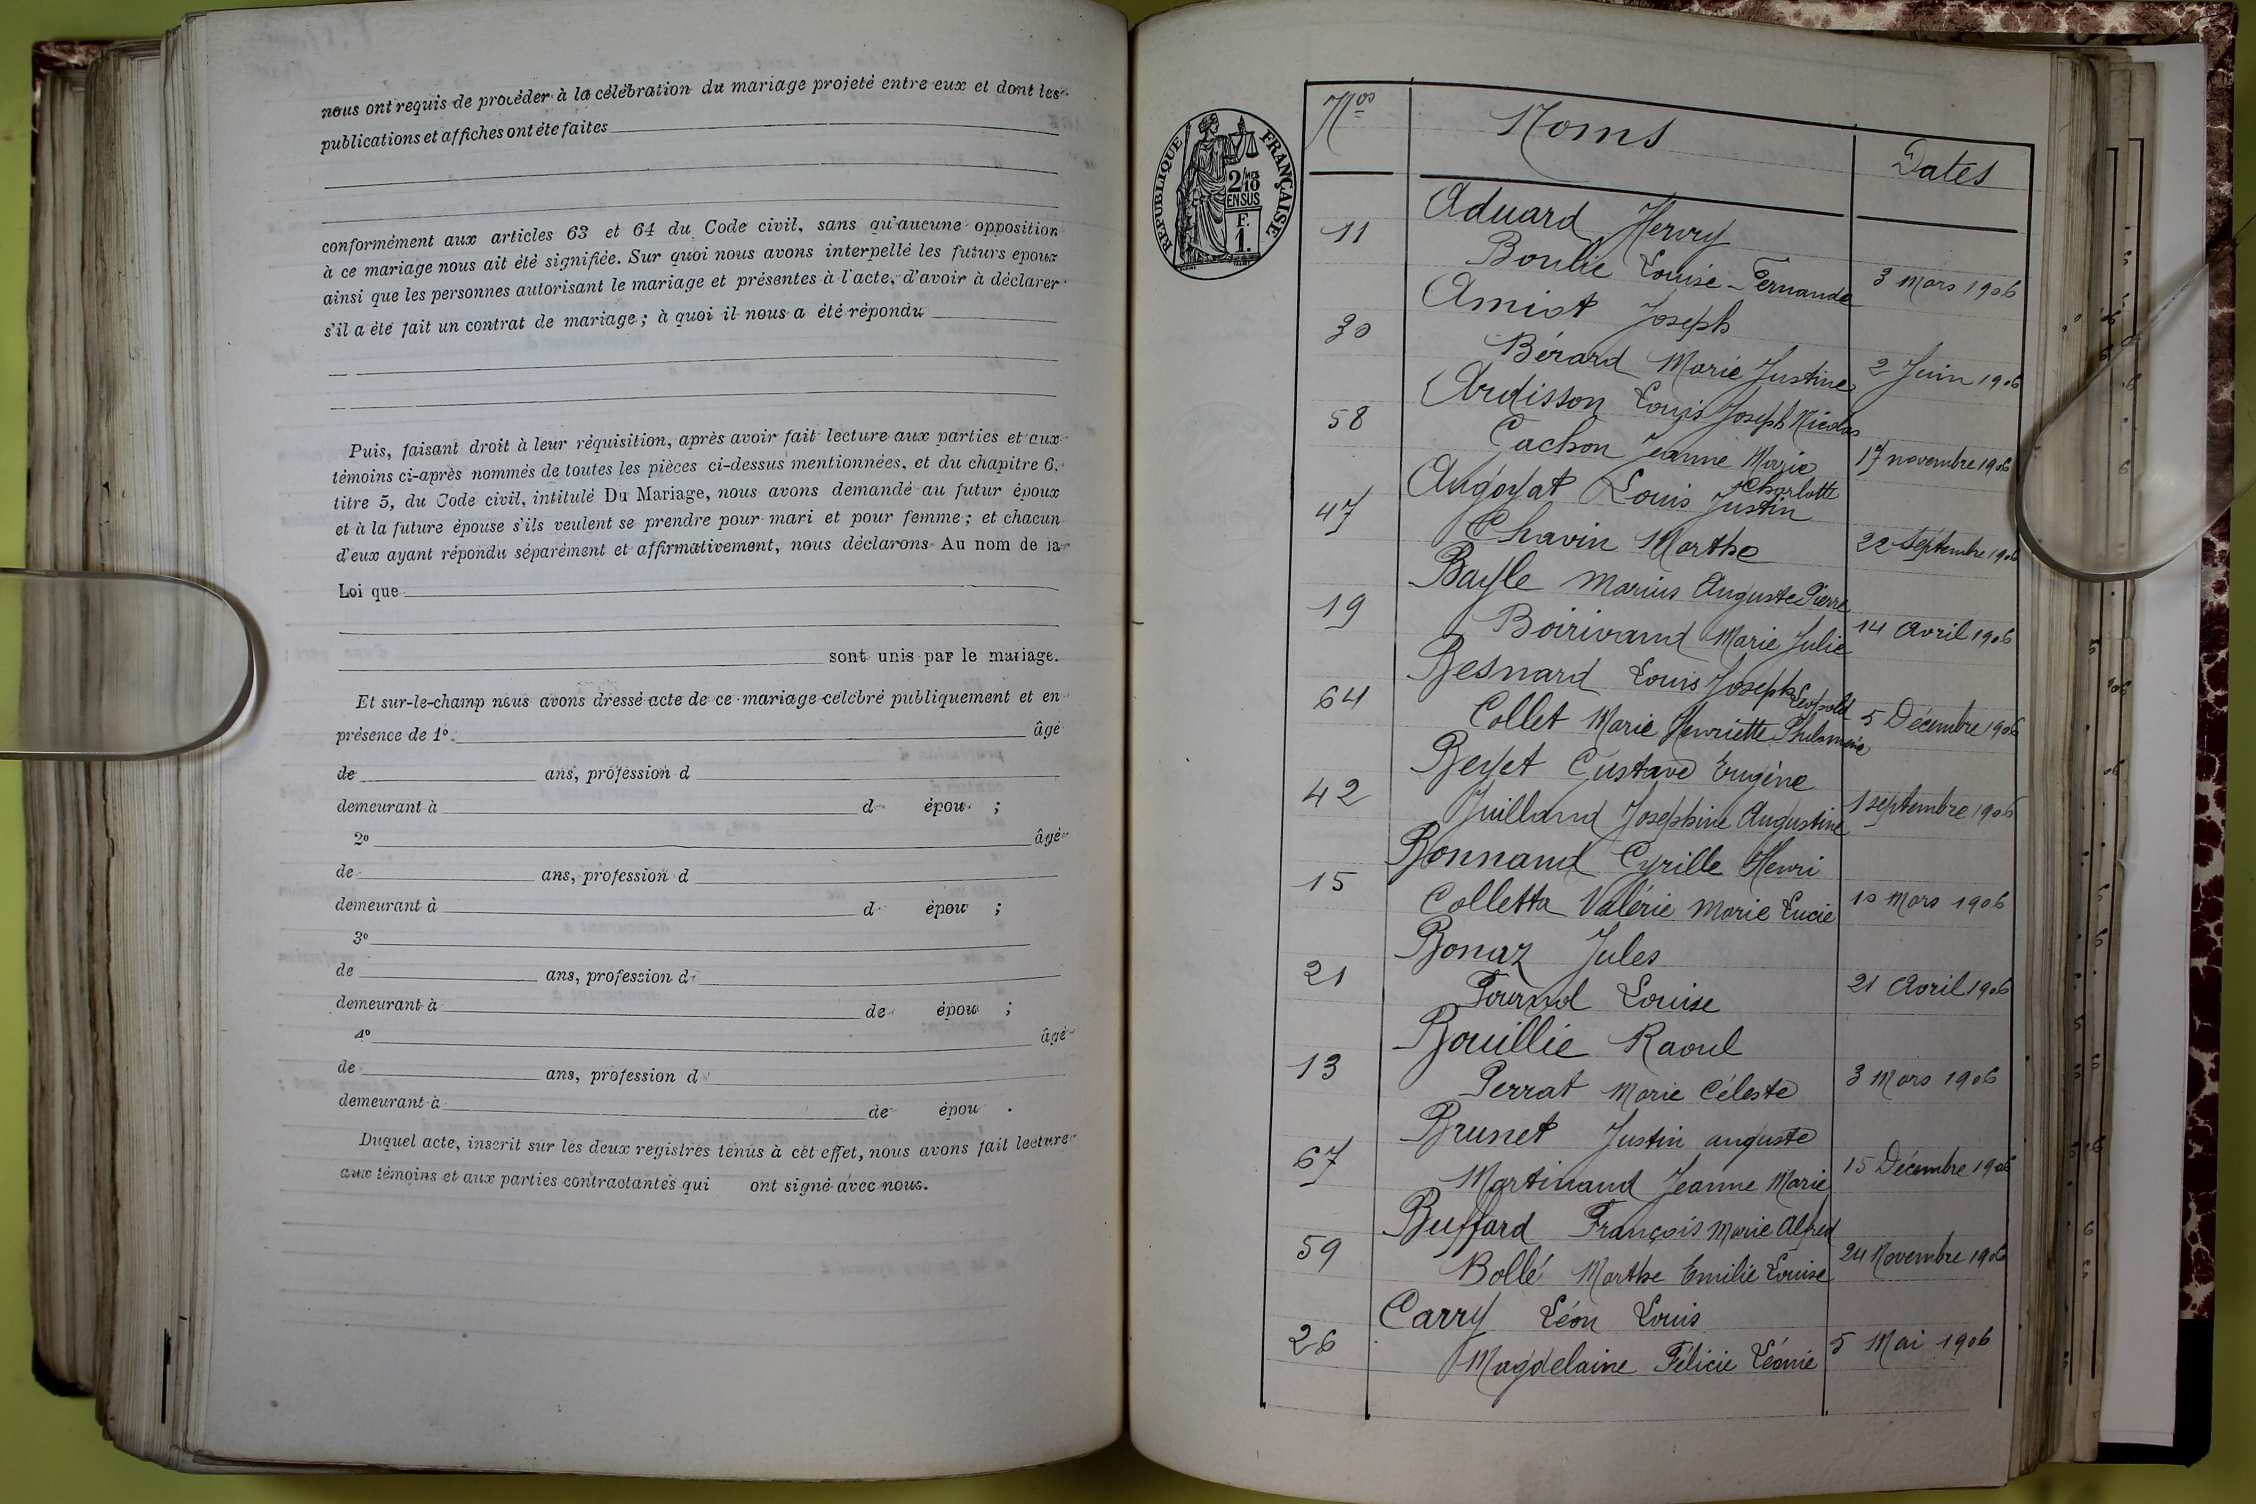 nous ont requis de procéder à la célébration du mariage projeté entre eux et dont les
publications et affiches ont été faites
conformément aux articles 63 et 64 du Code civil, sans qu'aucune opposition
à ce mariage nous ait été signifiée. Sur quoi nous avons interpellé les futurs époux
ainsi que les personnes autorisant le mariage et présentes à l'acte, d'avoir à déclarer
s'il a été fait un contrat de mariage; à quoi il nous a été répondu
Puis, faisant droit à leur réquisition, après avoir fait lecture aux parties et aux
témoins ci-après nommés de toutes les pièces ci-dessus mentionnées, et du chapitre 6,
titre 5, du Code civil, intitulé Du Mariage, nous avons demandé au futur époux
et à la future épouse s'ils veulent se prendre pour mari et pour femme; et chacun
d'eux ayant répondu séparément et affirmativement, nous déclarons Au nom de la
Loi que
sont unis par le mariage.
Et sur-le-champ nous avons dressé acte de ce mariage célébré publiquement et en
présence de 1º âgé
de ans, profession d
demeurant à d épou ;
2º âgé
de ans, profession d
demeurant à d épou ;
3º
de ans, profession d
demeurant à de épou ;
4º âgé
de ans, profession d
demeurant à de épou .
Duquel acte, inscrit sur les deux registres tenus à cet effet, nous avons fait lecture
aux témoins et aux parties contractantes qui ont signé avec nous.
RÉPUBLIQUE FRANÇAISE
2/10 MES
EN SUS
F.
1.
Nos Noms Dates
Aduard Henry
11 Boulic Louise-Fernande 3 Mars 1906
Amiot Joseph
30 Bérard Marie Justine 2 Juin 1906
Ardisson Louis Joseph Nicolas
58 Cachon Jeanne Marie Charlotte 17 novembre 1906
Augoyat Louis Justin
47 Chavin Marthe 22 Septembre 1906
Bayle Marius Auguste Pierre
19 Boirivand Marie Julie 14 Avril 1906
Besnard Louis Joseph Léopold
64 Collet Marie Henriette Philomène 5 Décembre 1906
Beyet Gustave Eugène
42 Juilland Joséphine Augustine 1 septembre 1906
Bonnand Cyrille Henri
15 Colletta Valérie Marie Lucie 10 Mars 1906
Bonaz Jules
21 Louise 21 Avril 1906
Bouillie Raoul
13 Perrat Marie Céleste 3 Mars 1906
Brunet Justin auguste
67 Martinand Jeanne Marie 15 Décembre 1906
Buffard François Marie Alfred
59 Bollé Marthe Emilie Louise 24 Novembre 1906
Carry Léon Louis
26 Magdelaine Félicie Léonie 5 Mai 1906